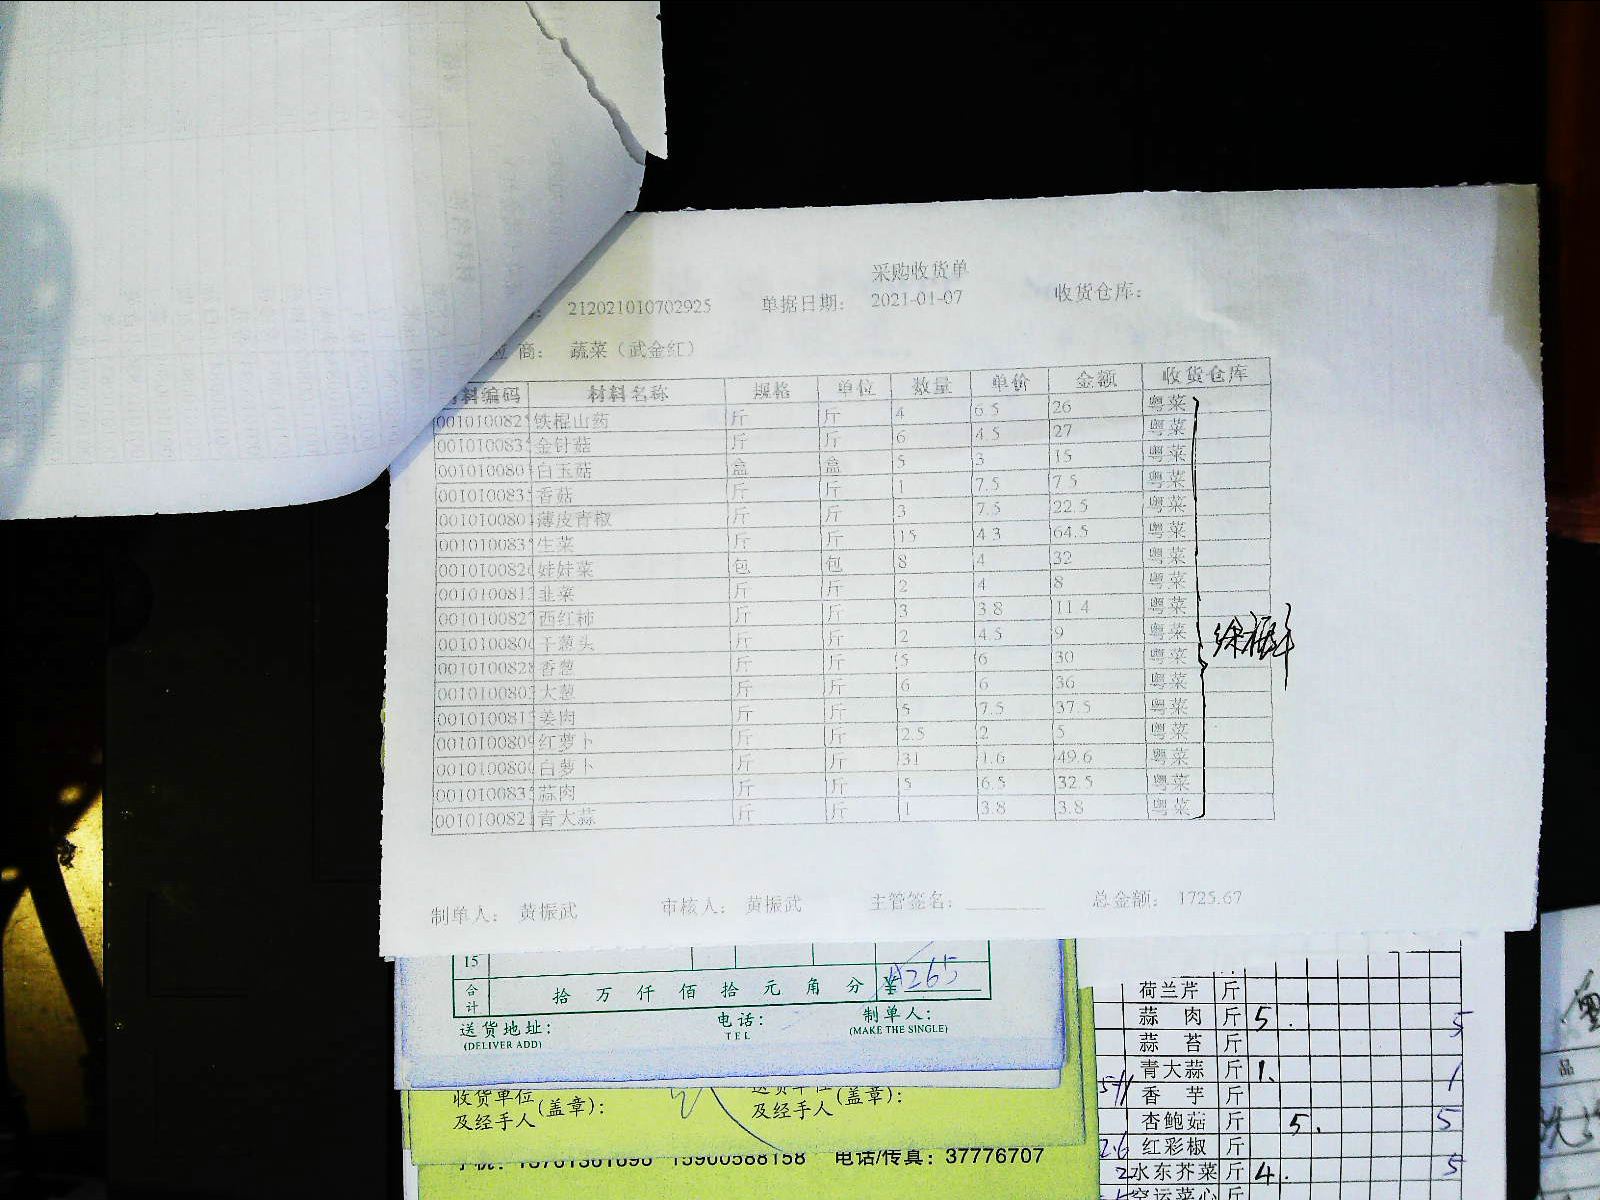 采购收货单
212021010702925 单据日期： 2021-01-07 收货仓库：
商： 蔬菜（武金红）
料编码 材料名称 规格 单位 数量 单价 金额 收货仓库
001010082 铁棍山药 斤 斤 4 6.5 26 粤菜
001010083 金针菇 斤 斤 6 4.5 27 粤菜
001010080 白玉菇 盒 盒 5 3 15 粤菜
001010083 香菇 斤 斤 1 7.5 7.5 粤菜
001010080 薄皮青椒 斤 斤 3 7.5 22.5 粤菜
001010083 生菜 斤 斤 15 4.3 64.5 粤菜
001010082 娃娃菜 包 包 8 4 32 粤菜
001010081 韭菜 斤 斤 2 4 8 粤菜
001010082 西红柿 斤 斤 3 3.8 11.4 粤菜
001010080 干葱头 斤 斤 2 4.5 9 粤菜
001010082 香葱 斤 斤 5 6 30 粤菜
001010080 大葱 斤 斤 6 6 36 粤菜
001010081 姜肉 斤 斤 5 7.5 37.5 粤菜
001010080 红萝卜 斤 斤 2.5 2 5 粤菜
001010080 白萝卜 斤 斤 31 1.6 49.6 粤菜
001010083 蒜肉 斤 斤 5 6.5 32.5 粤菜
001010082 青大蒜 斤 斤 1 3.8 3.8 粤菜
制单人： 黄振武 审核人： 黄振武 主管签名： 总金额： 1725.67
15
合计 拾 万 仟 佰 拾 元 角 分 ¥265
送货地址： 电话： 制单人：
(DELIVER ADD) TEL (MAKE THE SINGLE)
收货单位 (盖章)： 送货单位 (盖章)：
及经手人 及经手人
手机：13761361698 15900588158 电话/传真：37776707
荷兰芹 斤
蒜肉 斤 5. 5
蒜苔 斤
青大蒜 斤 1. 1
香芋 斤
杏鲍菇 斤 5. 5
红彩椒 斤
水东芥菜 斤 4. 5
空运菜心 斤
品